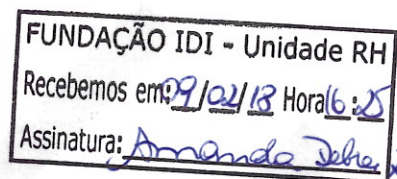 FUNDAÇÃO IDI - Unidade RH
Recebemos em: 09/02/18 Hora 16:25
Assinatura: Amanda